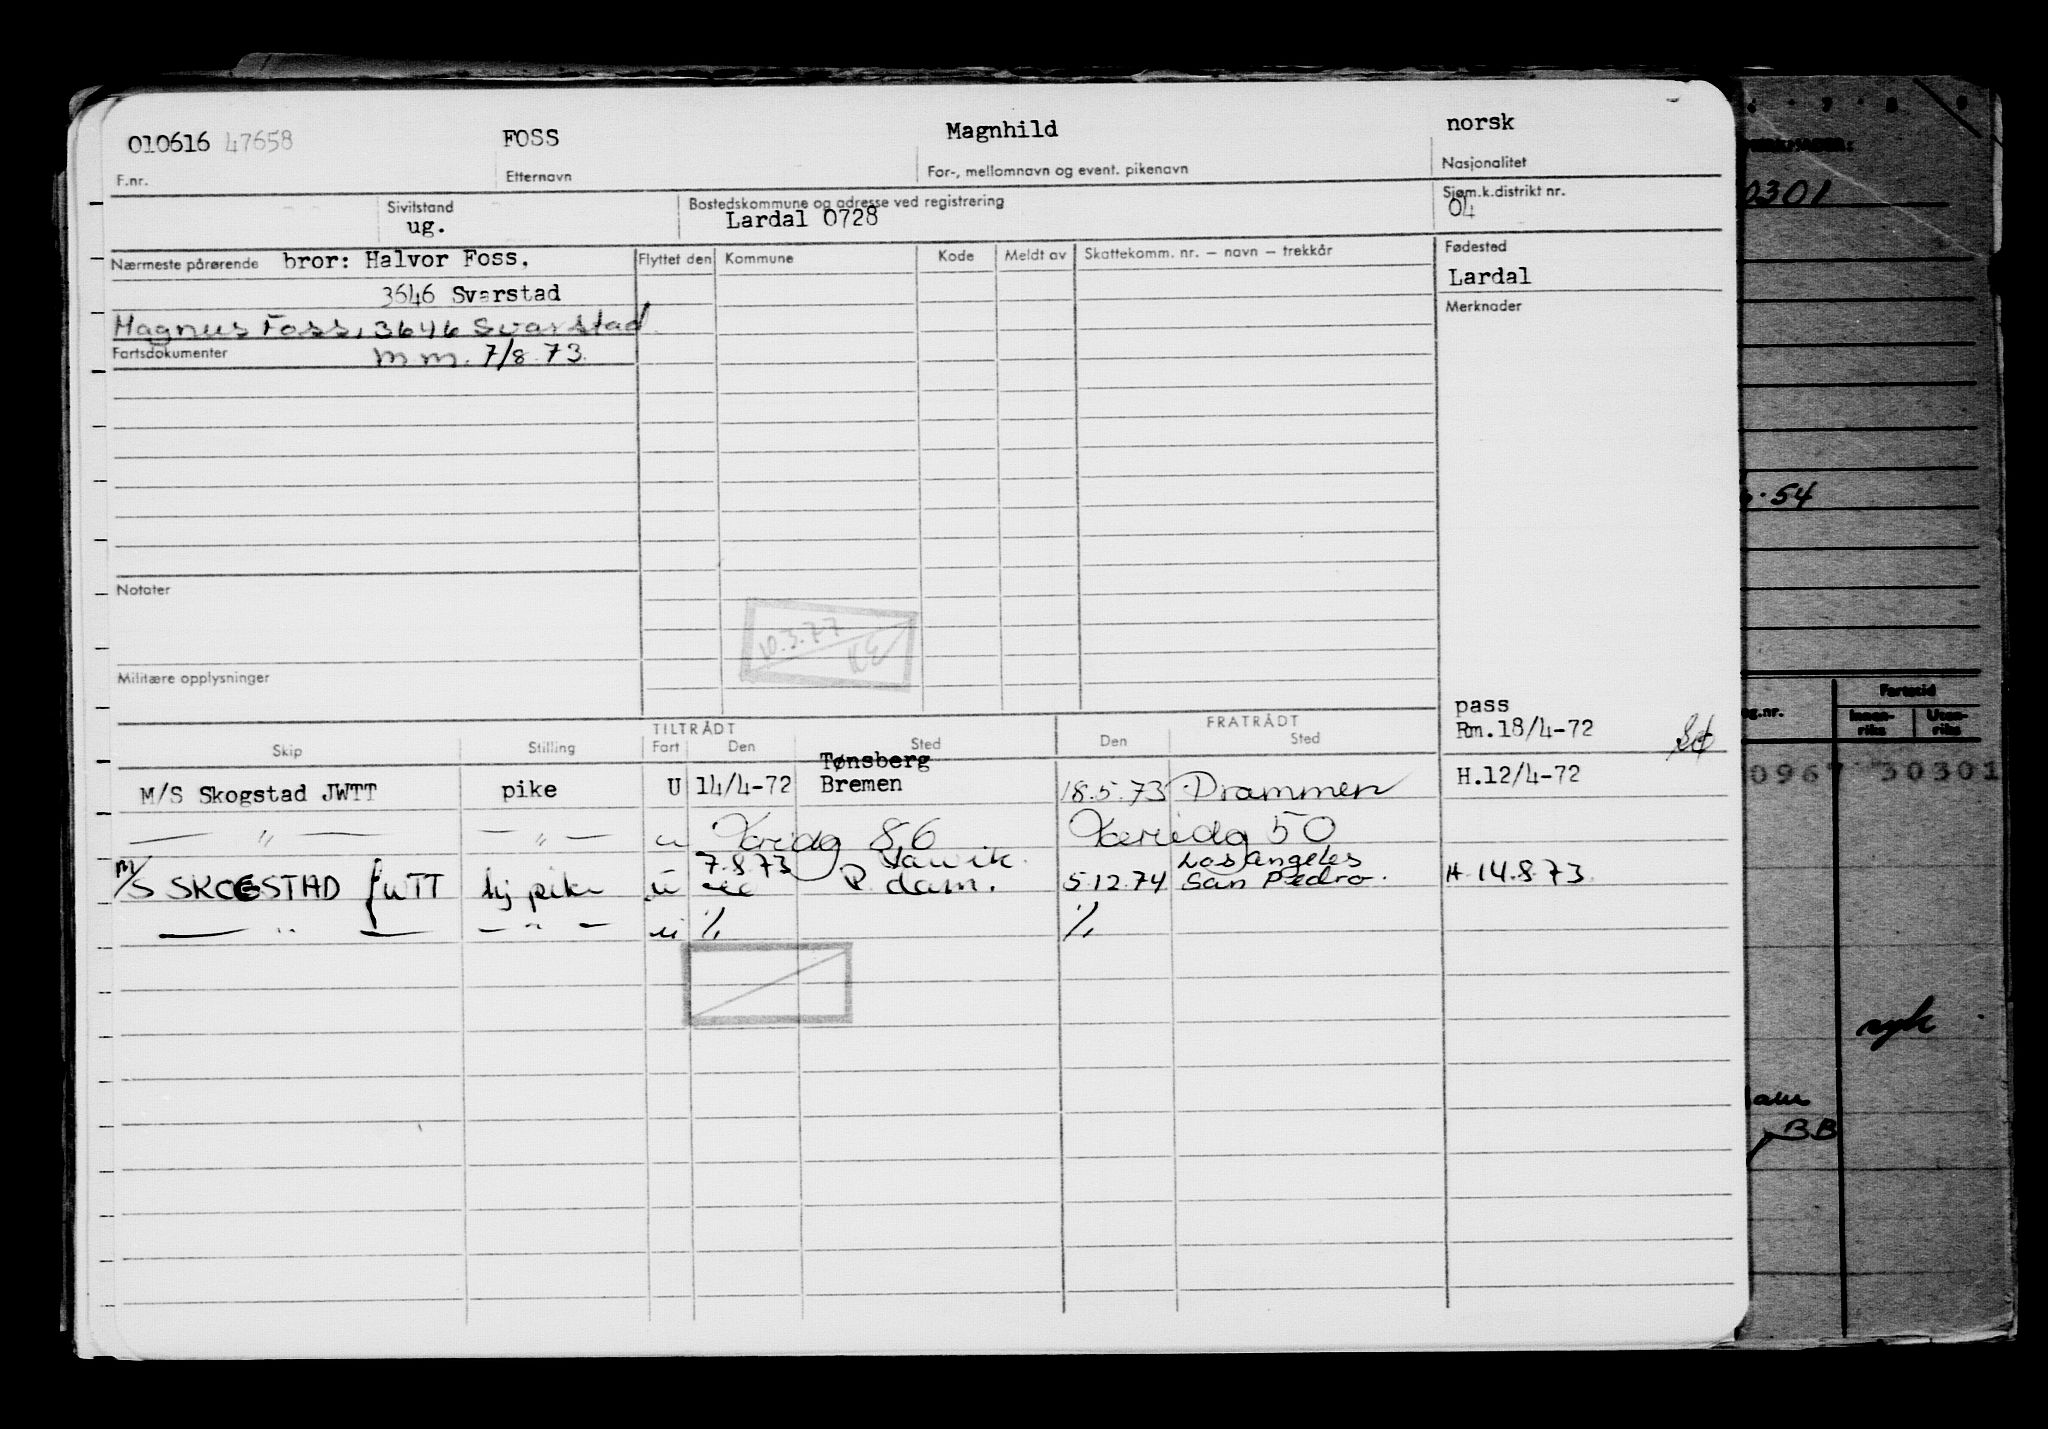 010616 47658 FOSS Magnhild norsk
F.nr. Etternavn For-, mellomnavn og event. pikenavn Nasjonalitet
Sivilstand Bostedskommune og adresse ved registrering Sjøm.k.distrikt nr.
ug. Lardal 0728 04
Nærmeste pårørende bror: Halvor Foss, Flyttet den Kommune Kode Meldt av Skattekomm. nr. – navn – trekkår Fødested
3646 Svarstad Lardal
Magnus Foss, 3646 Svarstad Merknader
Fartsdokumenter m m. 7/8 73.
Notater
10.3.77
KE
Militære opplysninger
pass
TILTRÅDT FRATRÅDT
Skip Stilling Fart Den Sted Den Sted Rm.18/4-72
Tønsberg
M/S Skogstad JWTT pike U 14/4-72 Bremen 18.5.73 Drammen H.12/4-72
— " — — " — u 86 50
7.8.73 Larvik. Los Angeles
M/S SKOGSTAD JWTT pike u P. dam. 5.12.74 San Pedro. H.14.8.73.
— " — — " — u 1/1 1/1
6 7 8 9
0301
54
Fartstid
Innen-riks Uten-riks
0967 30301
BB